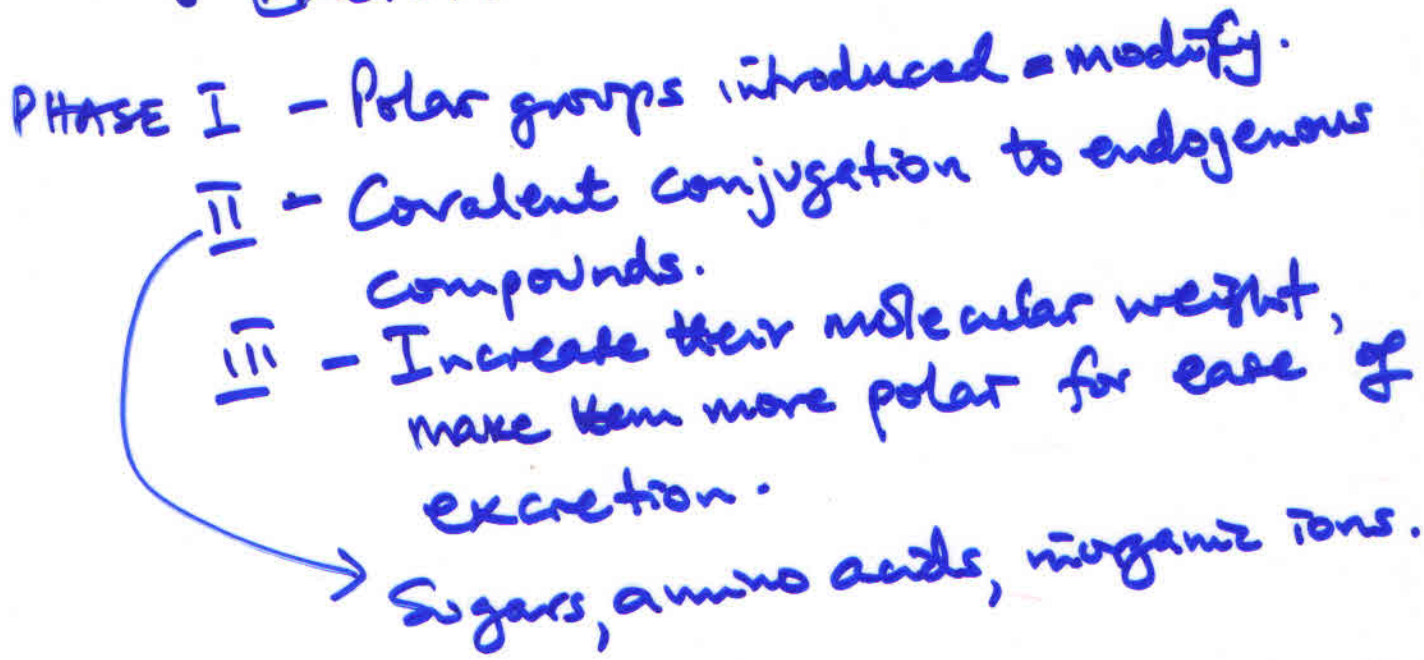 PHASE I - Polar groups introduced = modify.
II - Covalent conjugation to endogenous
compounds.
III - Increase their molecular weight,
make them more polar for ease of
excretion.
Sugars, amino acids, inorganic ions.